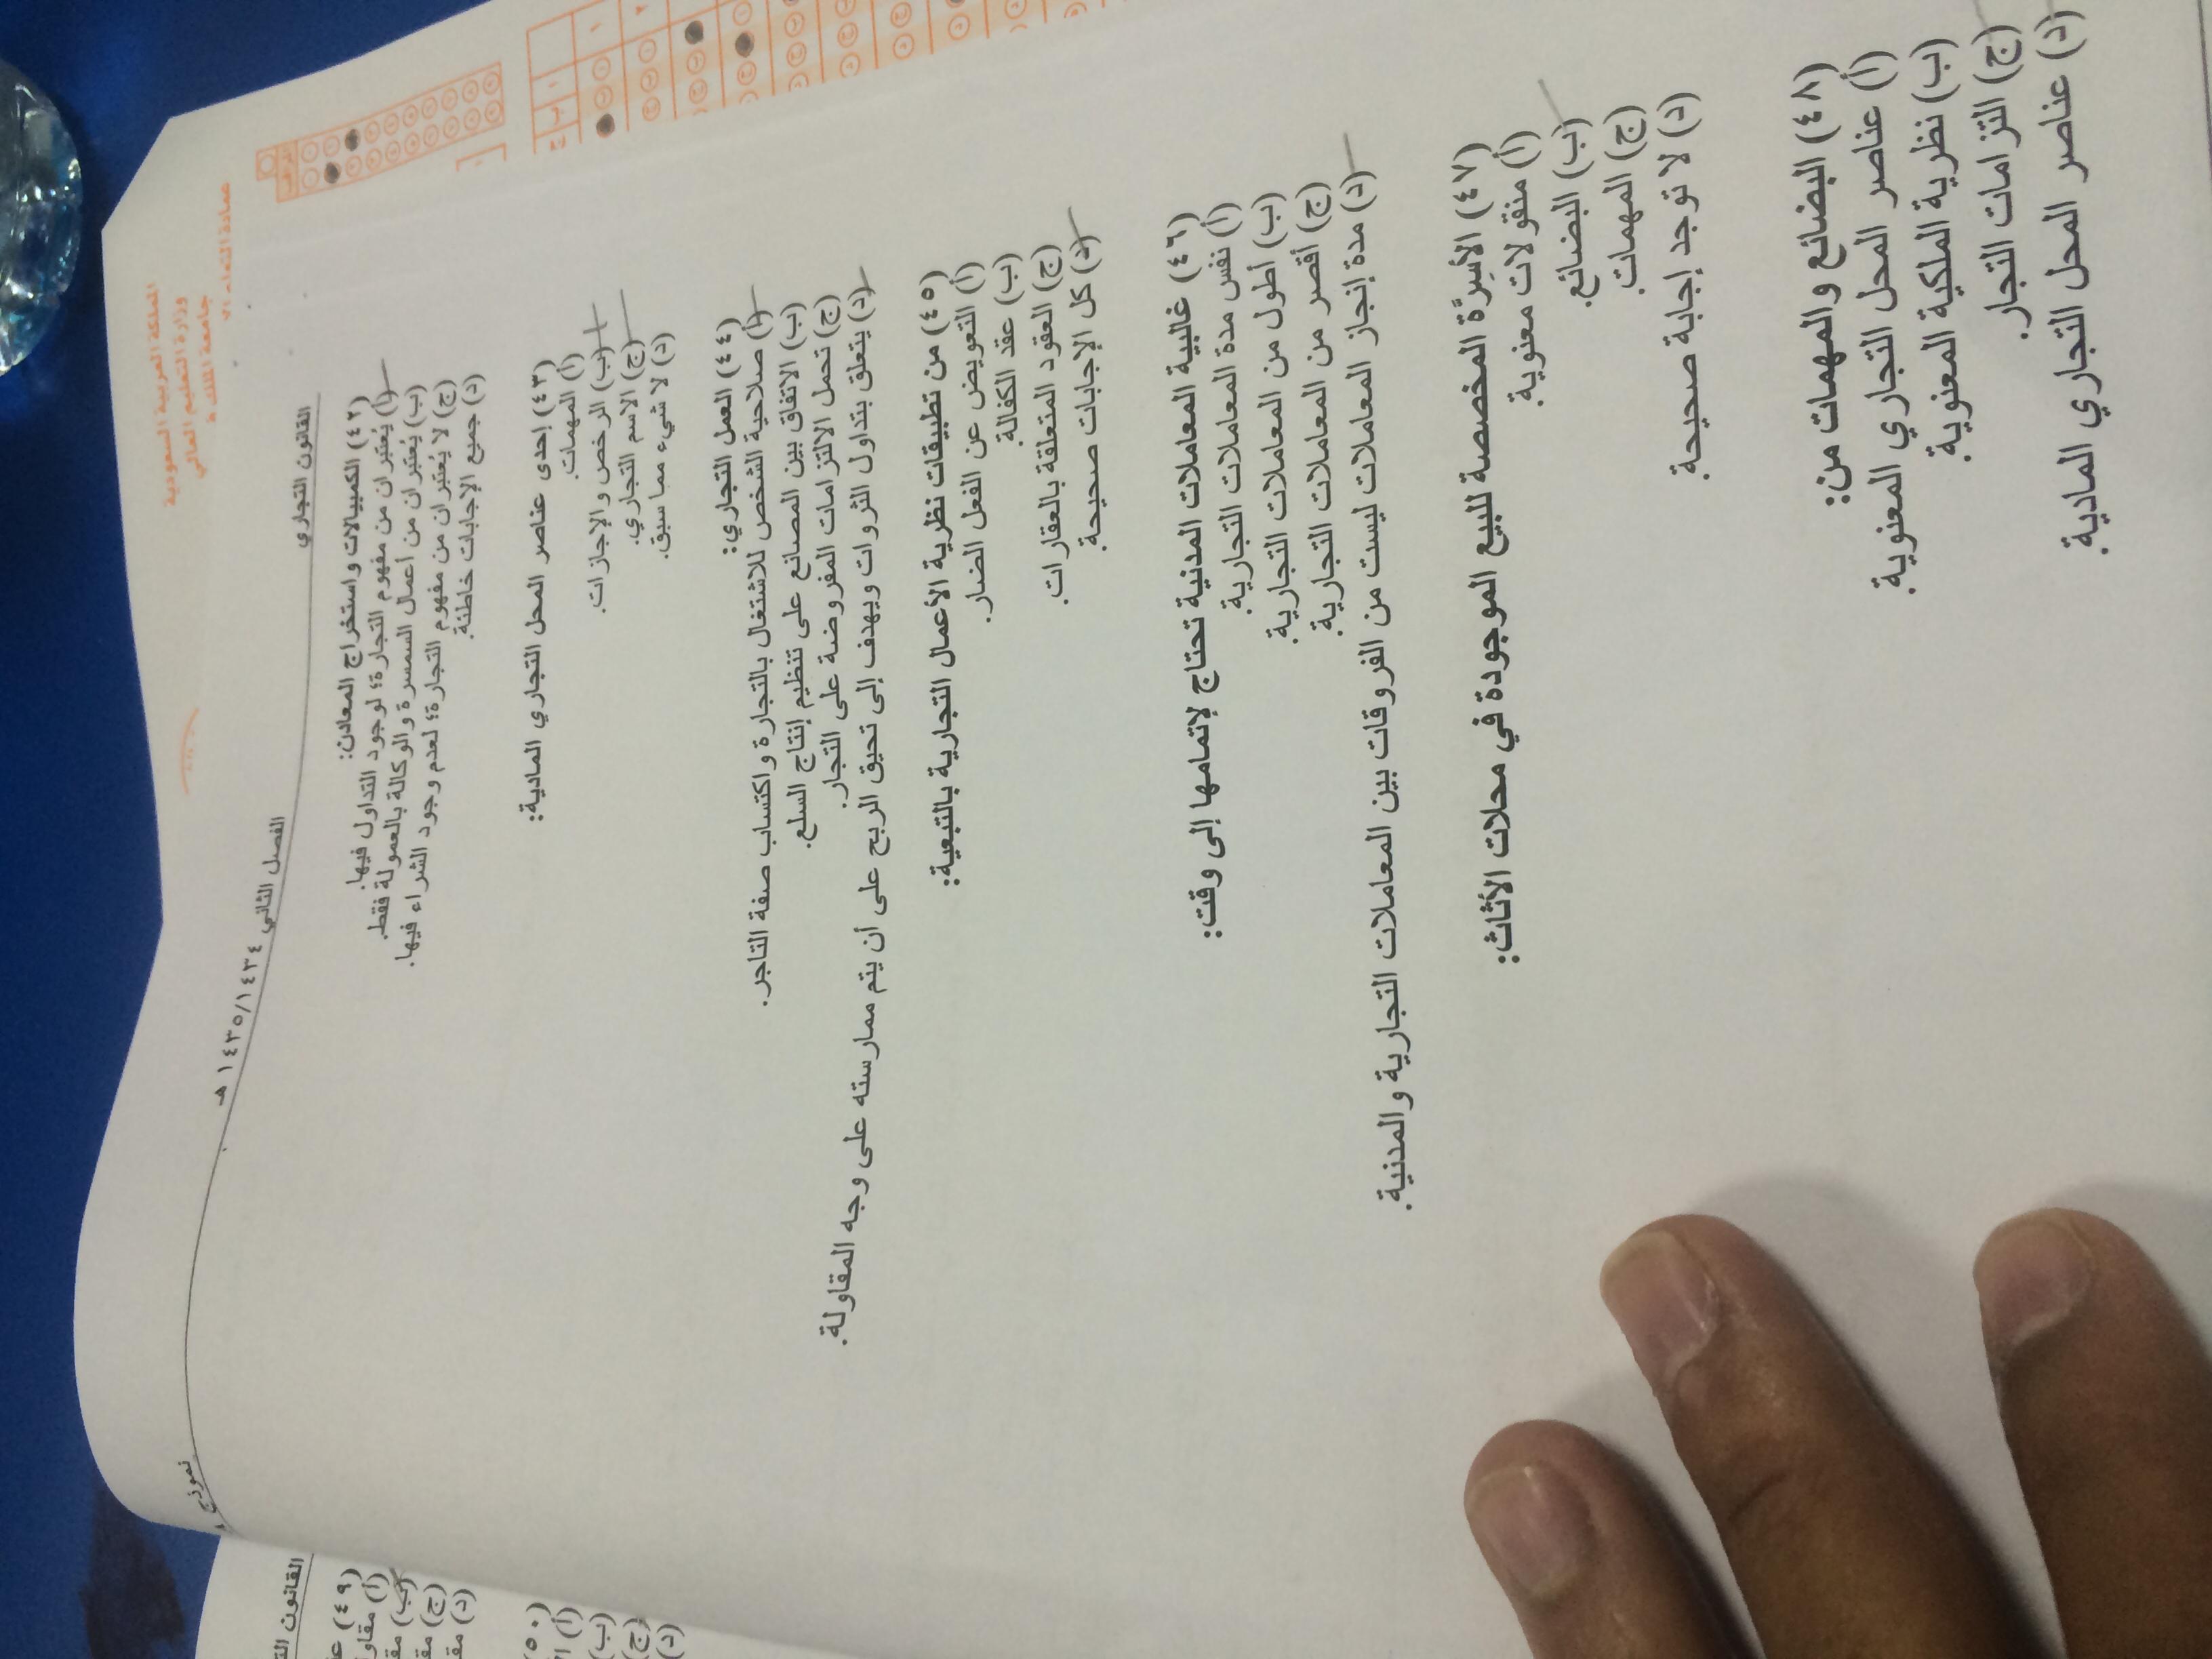 المملكة العربية السعودية
وزارة التعليم العالي
القانون التجاري
الفصل الثاني ١٤٣٥/١٤٣٤ هـ
نموذج
(٤٢) الكمبيالات واستخراج المعادن:
(أ) يُعتبران من مفهوم التجارة؛ لوجود التداول فيها.
(ب) يُعتبران من أعمال السمسرة والوكالة بالعمولة فقط.
(ج) لا يُعتبران من مفهوم التجارة؛ لعدم وجود الشراء فيها.
(د) جميع الإجابات خاطئة.
(٤٣) إحدى عناصر المحل التجاري المادية:
(أ) المهمات.
(ب) الرخص والإجازات.
(ج) الاسم التجاري.
(د) لا شيء مما سبق.
(٤٤) العمل التجاري:
(أ) صلاحية الشخص للاشتغال بالتجارة واكتساب صفة التاجر.
(ب) الاتفاق بين المصانع على تنظيم إنتاج السلع.
(ج) تحمل الالتزامات المفروضة على التجار.
(د) يتعلق بتداول الثروات ويهدف إلى تحيق الربح على أن يتم ممارسته على وجه المقاولة.
(٤٥) من تطبيقات نظرية الأعمال التجارية بالتبعية:
(أ) التعويض عن الفعل الضار.
(ب) عقد الكفالة.
(ج) العقود المتعلقة بالعقارات.
(د) كل الإجابات صحيحة.
(٤٦) غالبية المعاملات المدنية تحتاج لإتمامها إلى وقت:
(أ) نفس مدة المعاملات التجارية.
(ب) أطول من المعاملات التجارية.
(ج) أقصر من المعاملات التجارية.
(د) مدة إنجاز المعاملات ليست من الفروقات بين المعاملات التجارية والمدنية.
(٤٧) الأسِرَّة المخصصة للبيع الموجودة في محلات الأثاث:
(أ) منقولات معنوية.
(ب) البضائع.
(ج) المهمات.
(د) لا توجد إجابة صحيحة.
(٤٨) البضائع والمهمات من:
(أ) عناصر المحل التجاري المعنوية.
(ب) نظرية الملكية المعنوية.
(ج) التزامات التجار.
(د) عناصر المحل التجاري المادية.
(٤٩)
(أ)
(ب)
(ج)
(د)
(٥٠)
(أ)
(ب)
(ج)
(د)